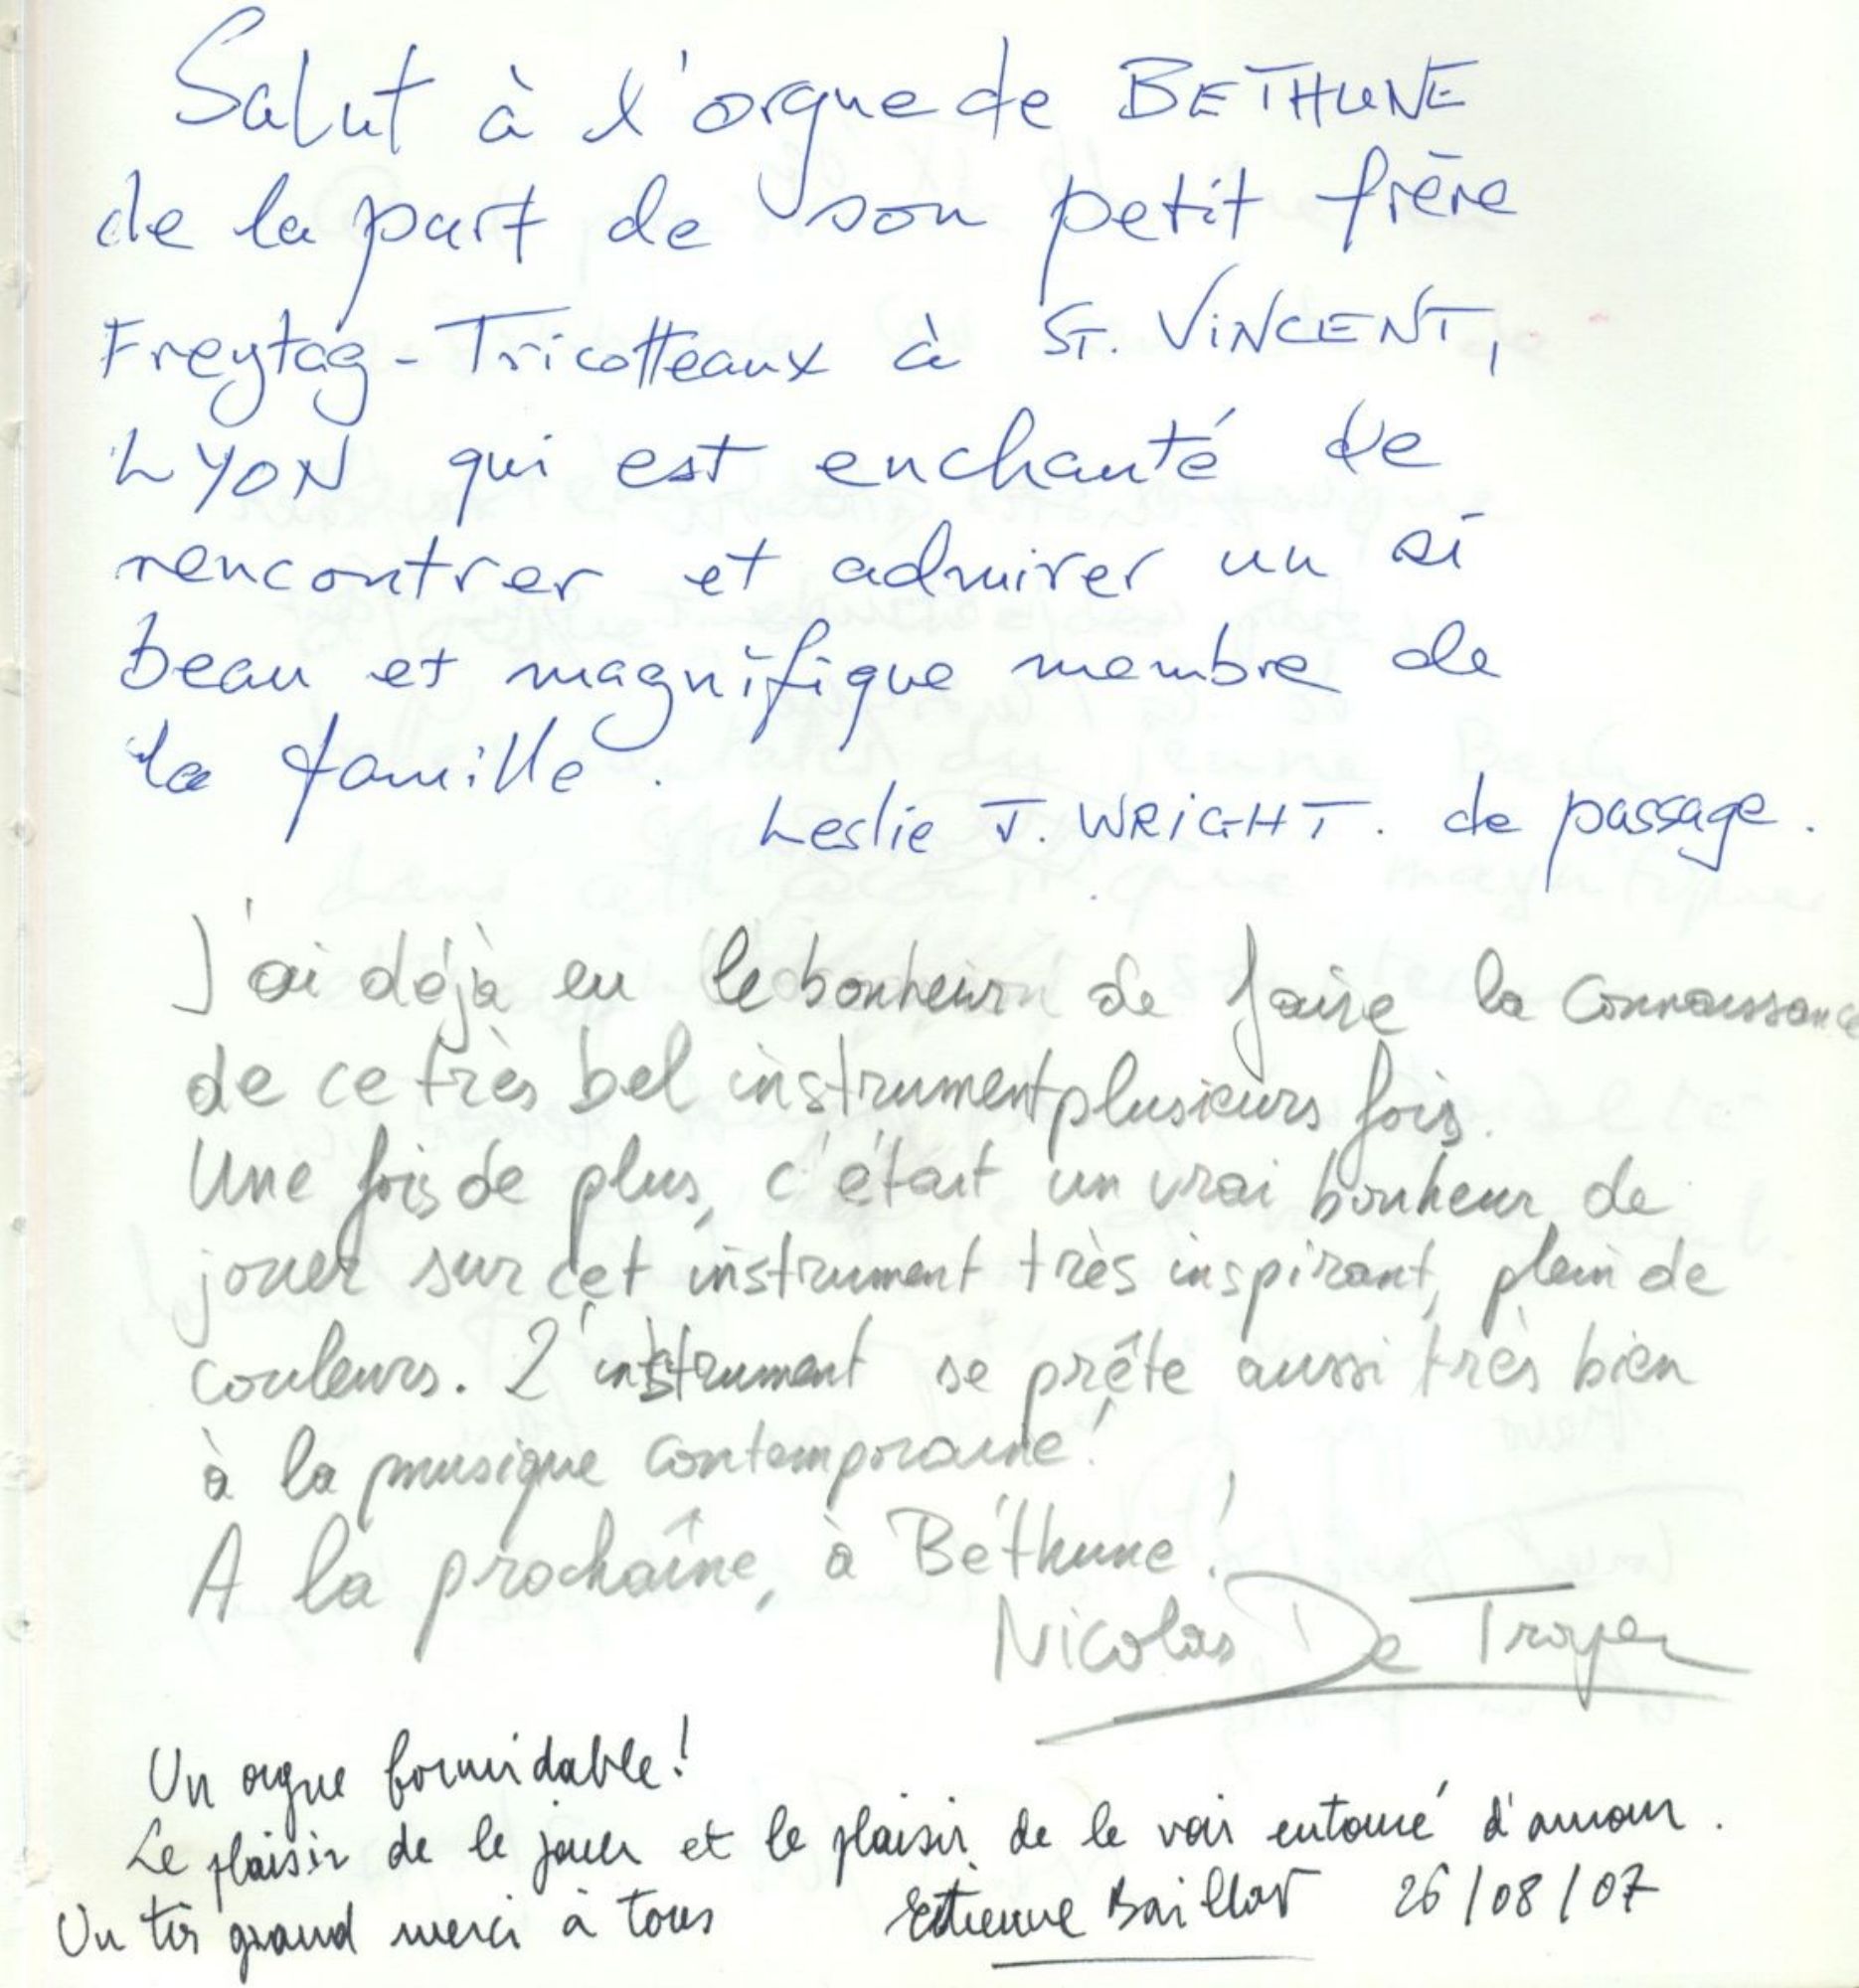 Salut à l'orgue de BETHUNE
de la part de son petit frère
Freytag-Tricotteaux à ST. VINCENT,
LYON qui est enchanté de
rencontrer et admirer un si
beau et magnifique membre de
la famille.
Leslie J. WRIGHT. de passage.
J'ai déjà eu le bonheur de faire la connaissance
de ce très bel instrument plusieurs fois.
Une fois de plus, c'était un vrai bonheur de
jouer sur cet instrument très inspirant, plein de
couleurs. L'instrument se prête aussi très bien
à la musique contemporaine!
A la prochaîne, à Béthune!
Nicolas De Troyer
Un orgue formidable!
Le plaisir de le jouer et le plaisir de le voir entouré d'amour.
Un très grand merci à tous Etienne Baillot 26/08/07